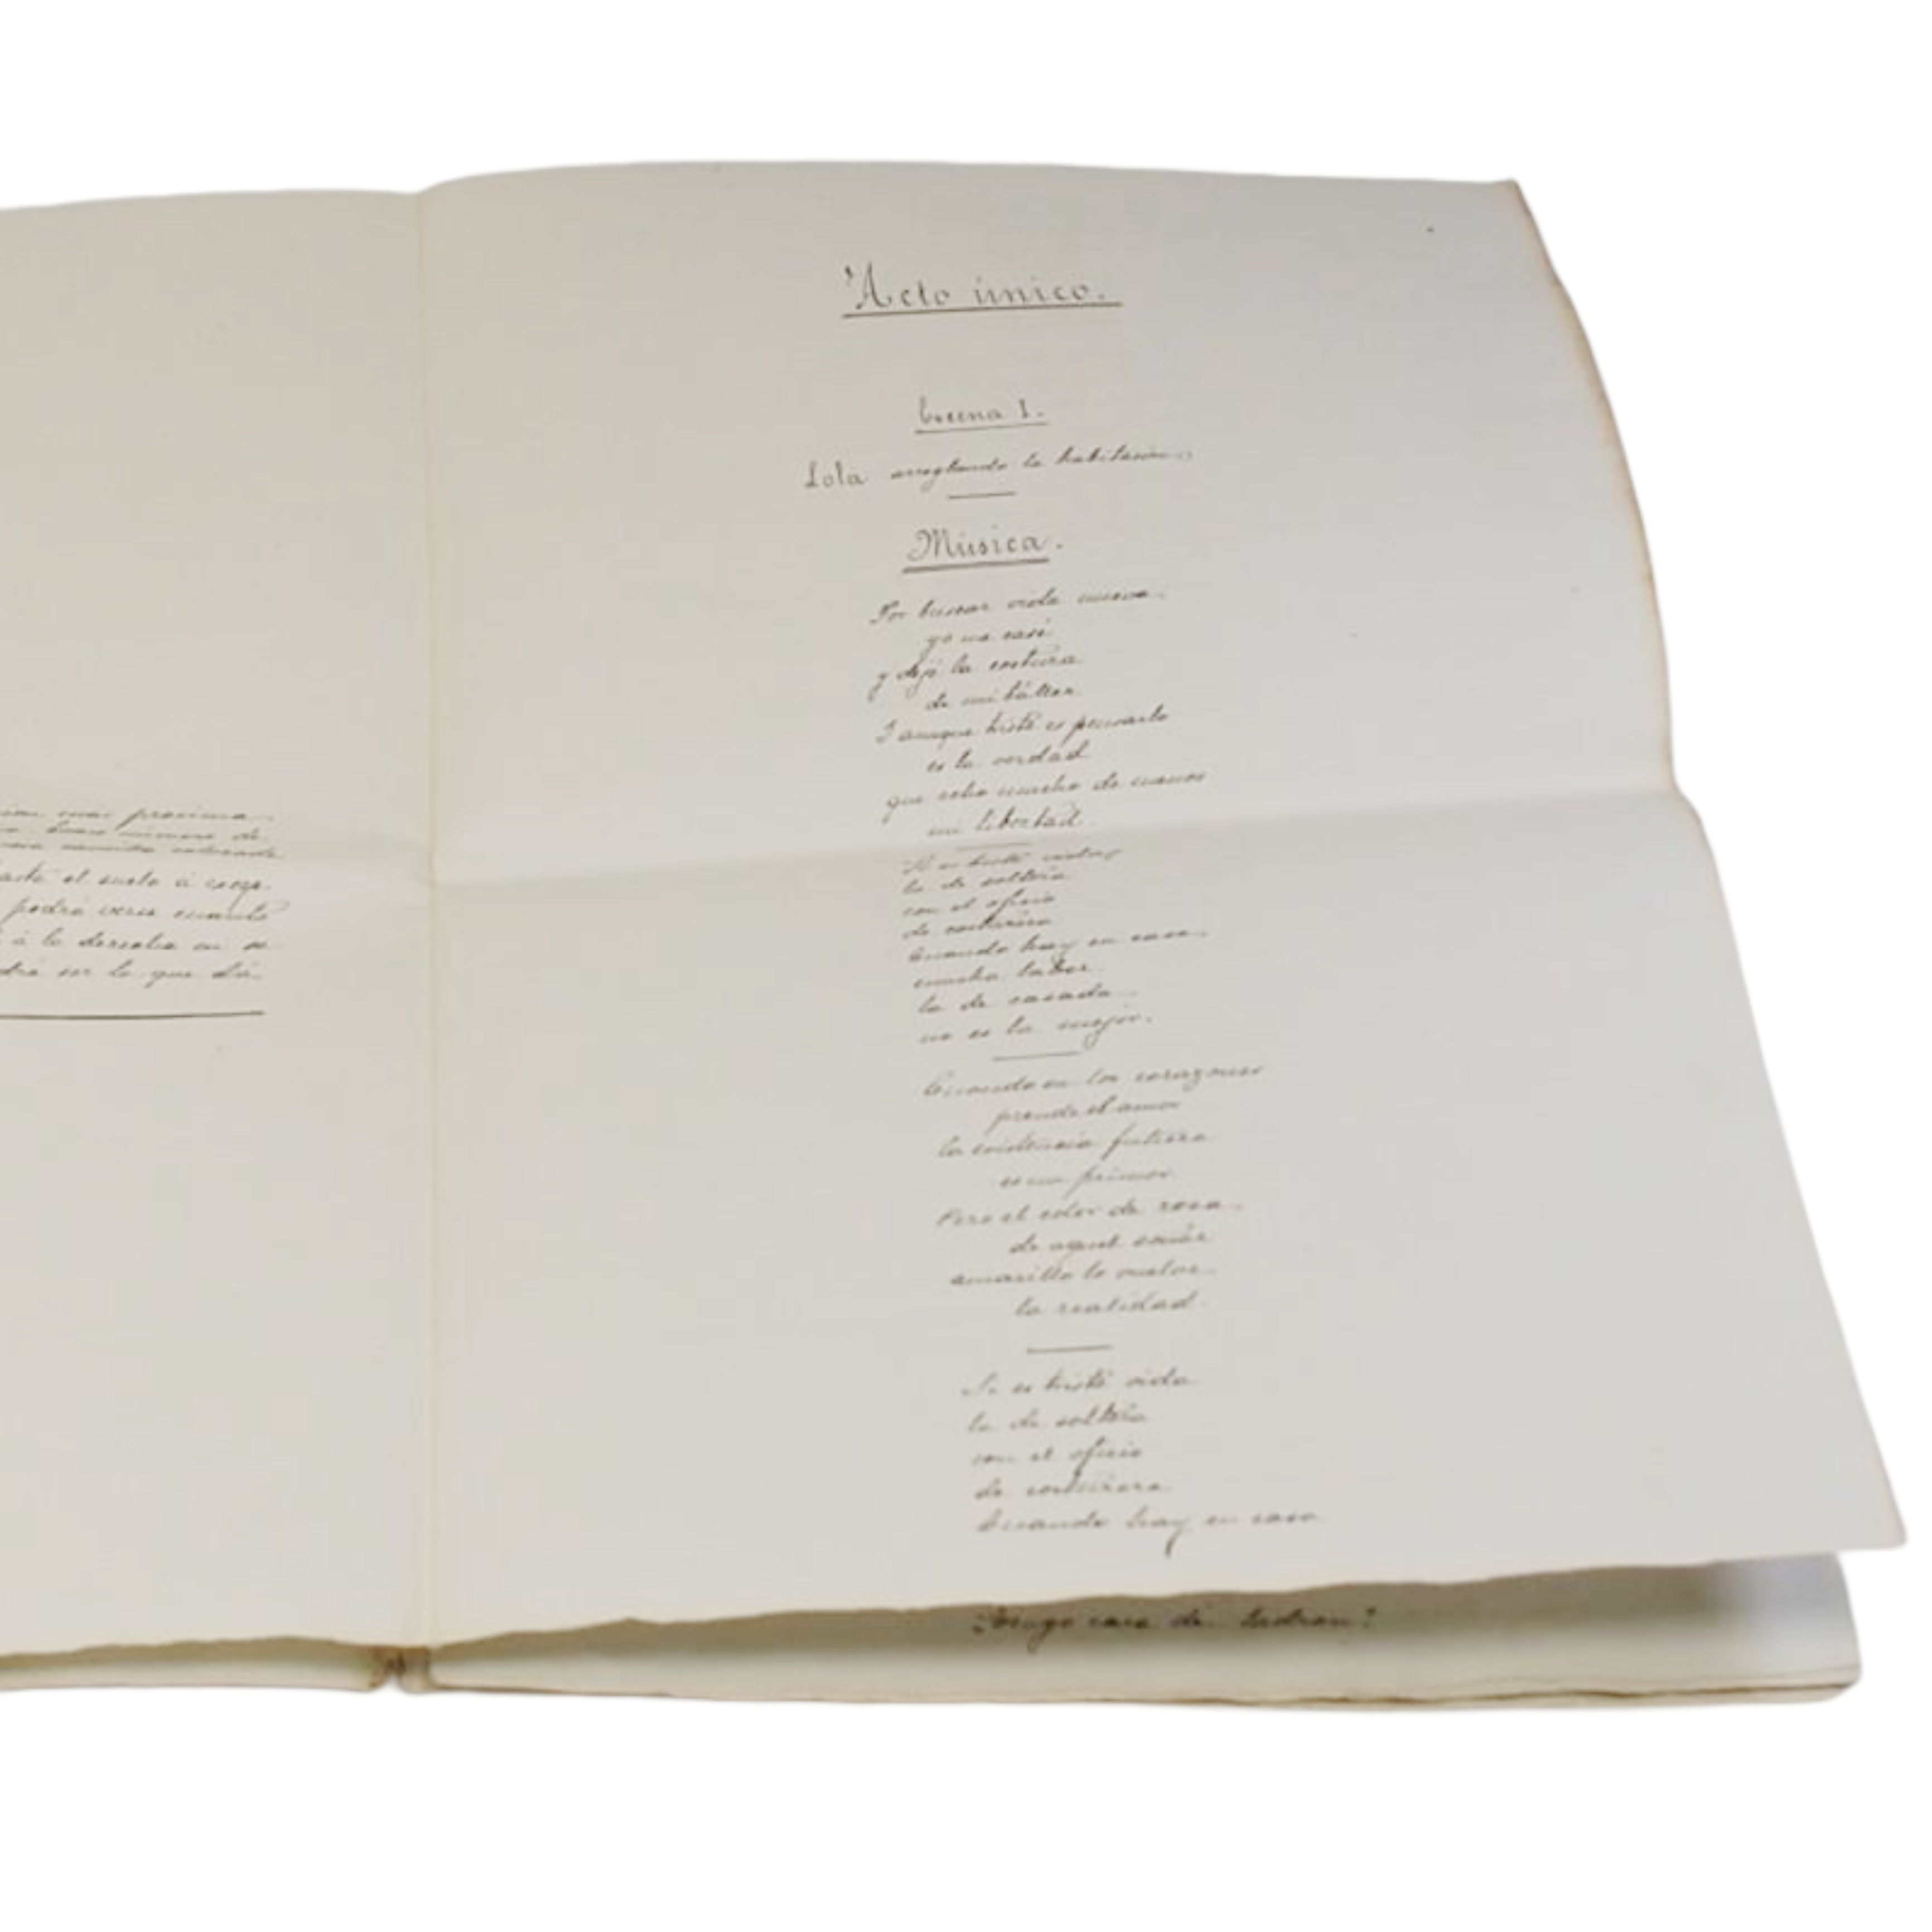 más proxima
buen número de
el suelo á
podrá verse cuanto
á la derecha en
ser lo que
Acto único.
Escena I.
Lola arreglando la habitación.
Música.
Por buscar vida nueva
yo me casé
y dejé la costura
de mi táller.
Y aunque triste es pensarlo
es la verdad
que echo mucho de menos
mi libertad.
Si es triste vida
la de soltera
con el oficio
de costurera
Cuando hay en casa
mucha labor
la de casada
no es la mejor.
Cuando en los corazones
prende el amor
la existencia futura
es un primor
Pero el color de rosa
de aquel soñar
amarillo lo vuelve
la realidad.
Si es triste vida
la de soltera
con el oficio
de costurera
Cuando hay en casa
¿Tengo cara de ladron?